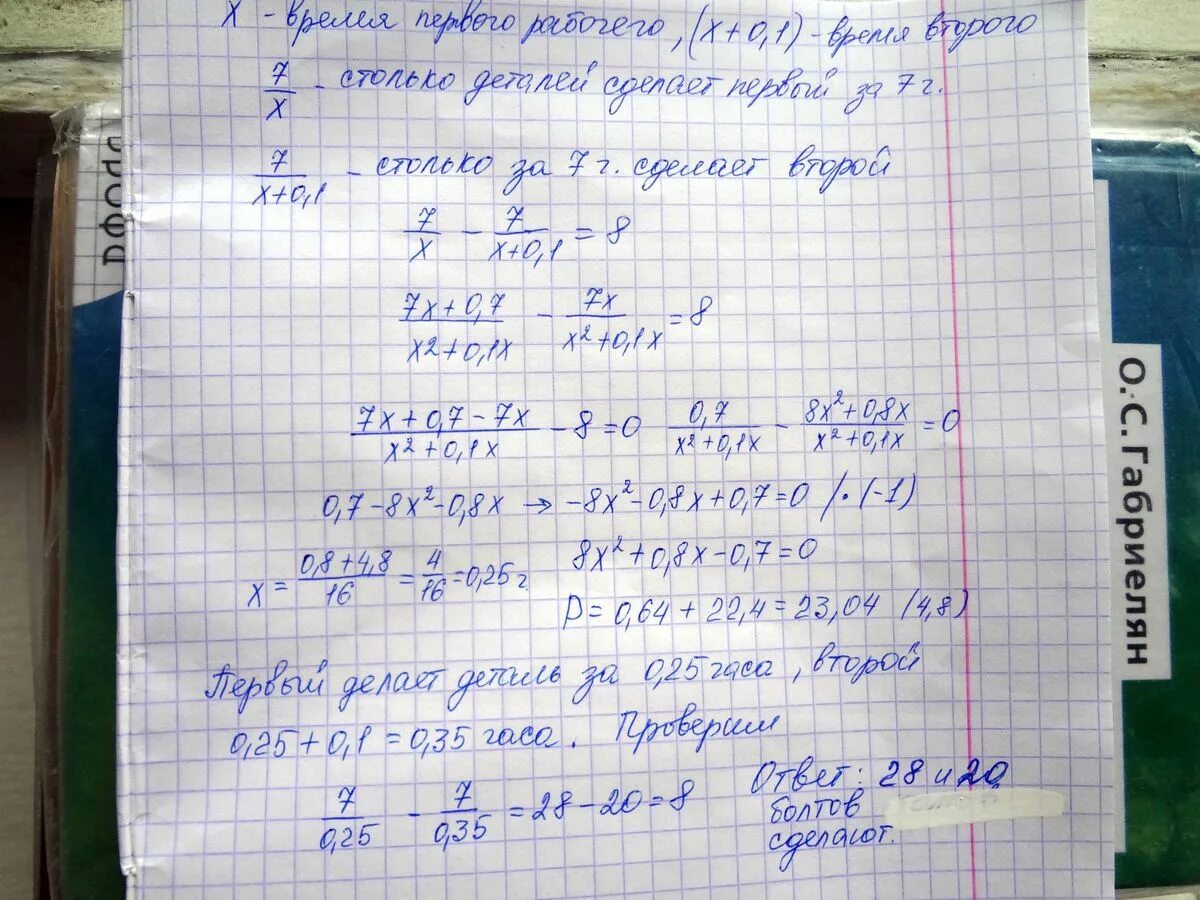 x - время первого рабочего, (x+0,1) - время второго
7/x - столько деталей сделает первый за 7 ч.
7/(x+0,1) - столько за 7 ч. сделает второй
7/x - 7/(x+0,1) = 8
(7x+0,7)/(x²+0,1x) - 7x/(x²+0,1x) = 8
(7x+0,7-7x)/(x²+0,1x) - 8 = 0   0,7/(x²+0,1x) - (8x²+0,8x)/(x²+0,1x) = 0
0,7-8x²-0,8x → -8x²-0,8x+0,7=0 /·(-1)
8x²+0,8x-0,7=0
x = (0,8+4,8)/16 = 4/16 = 0,25 ч.
D = 0,64 + 22,4 = 23,04 (4,8)
Первый делает деталь за 0,25 часа, второй
0,25+0,1=0,35 часа. Проверим
7/0,25 - 7/0,35 = 28-20=8
Ответ: 28 и 20
болтов
сделают.
О.С. Габриелян